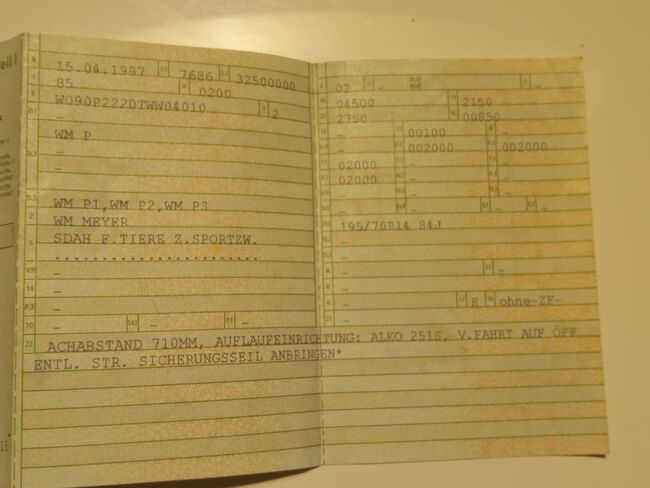 15.04.1997 7686 32500000
85 0200
W090P2220TWW04010 2
WM P
-
WM P1,WM P2,WM P3
WM MEYER
SDAH F.TIERE Z.SPORTZW.
-
-
-
- - -
02 - -
04500 2150
2750 00850
- 00100 -
- 002000 002000
02000 - -
02000 - -
- - - -
195/70R14 84J
-
-
- -
-
- E ohne-ZF-
-
22 ACHABSTAND 710MM, AUFLAUFEINRICHTUNG: ALKO 251S, V.FAHRT AUF ÖFF
ENTL. STR. SICHERUNGSSEIL ANBRINGEN*